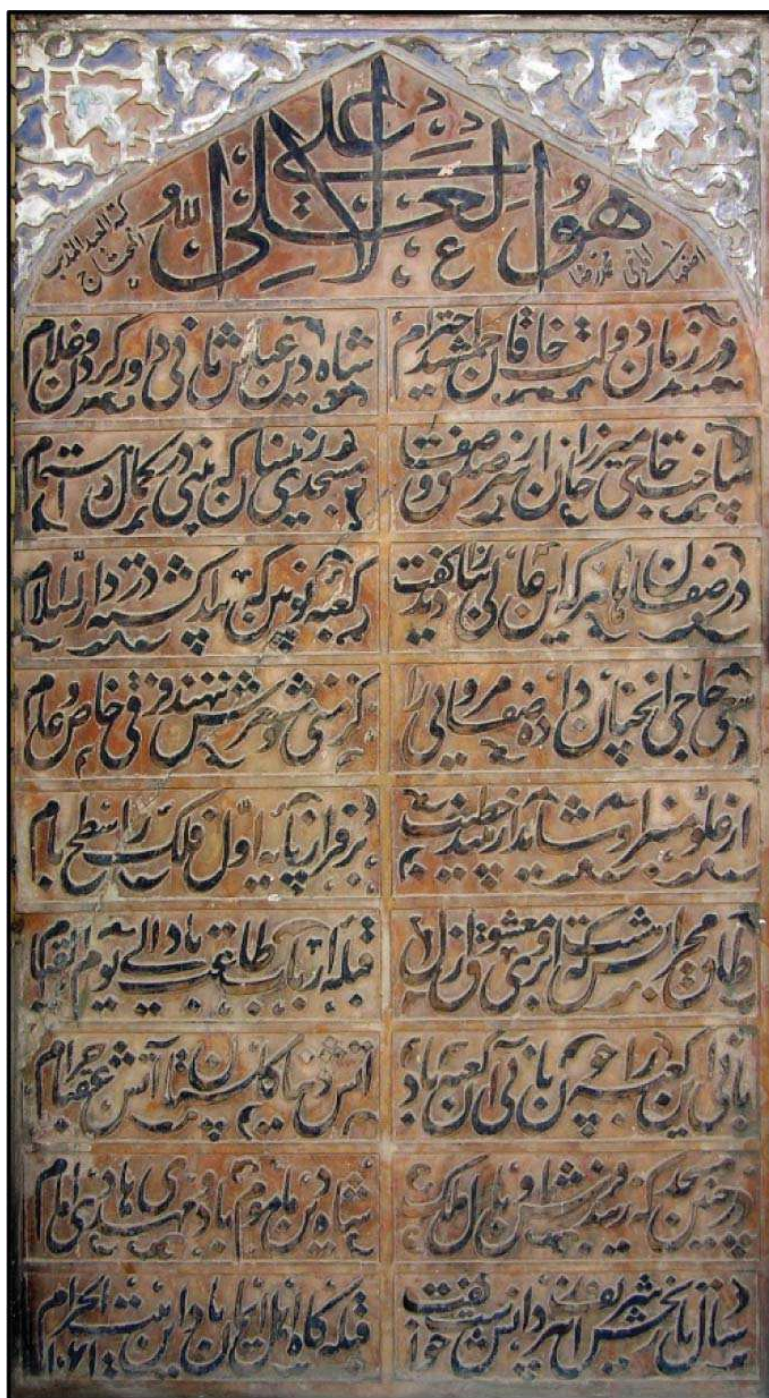 هو العلی الاعلی
کتبه العبد المذنب المحتاج
در زمان دولت خاقان جمشید احترام شاه دین عباس ثانی داور گردون غلام
ساخت حاجی میرزا خان از سر صدق و صفا مسجدی زینسان که بینی در کمال اهتمام
در صفاهان هر که این عالی بنا را دید گفت کعبه نو بین که پیدا گشته در دارالسلام
سعی حاجی انچنان داده صفا را کز خاص و عام
از علو منبر او شاید ار بیند خطیب بر فراز پایه اول فلک را سطح بام
طاق محرابش که شد ابروی معشوق ازل قبله ارباب طاعت باد الی یوم القیام
بانی این کعبه را چون بانی آن کعبه باد آتش دنیا گلستان آتش عقبی حرام
در چنین مسجد که زیبد فرش او بال ملک شاه دین ماموم باد و مهدی هادی امام
سال تاریخش شریف از دانش خواست گفت قبله گاه اهل ایمان باد این بیت الحرام ۱۰۶۱